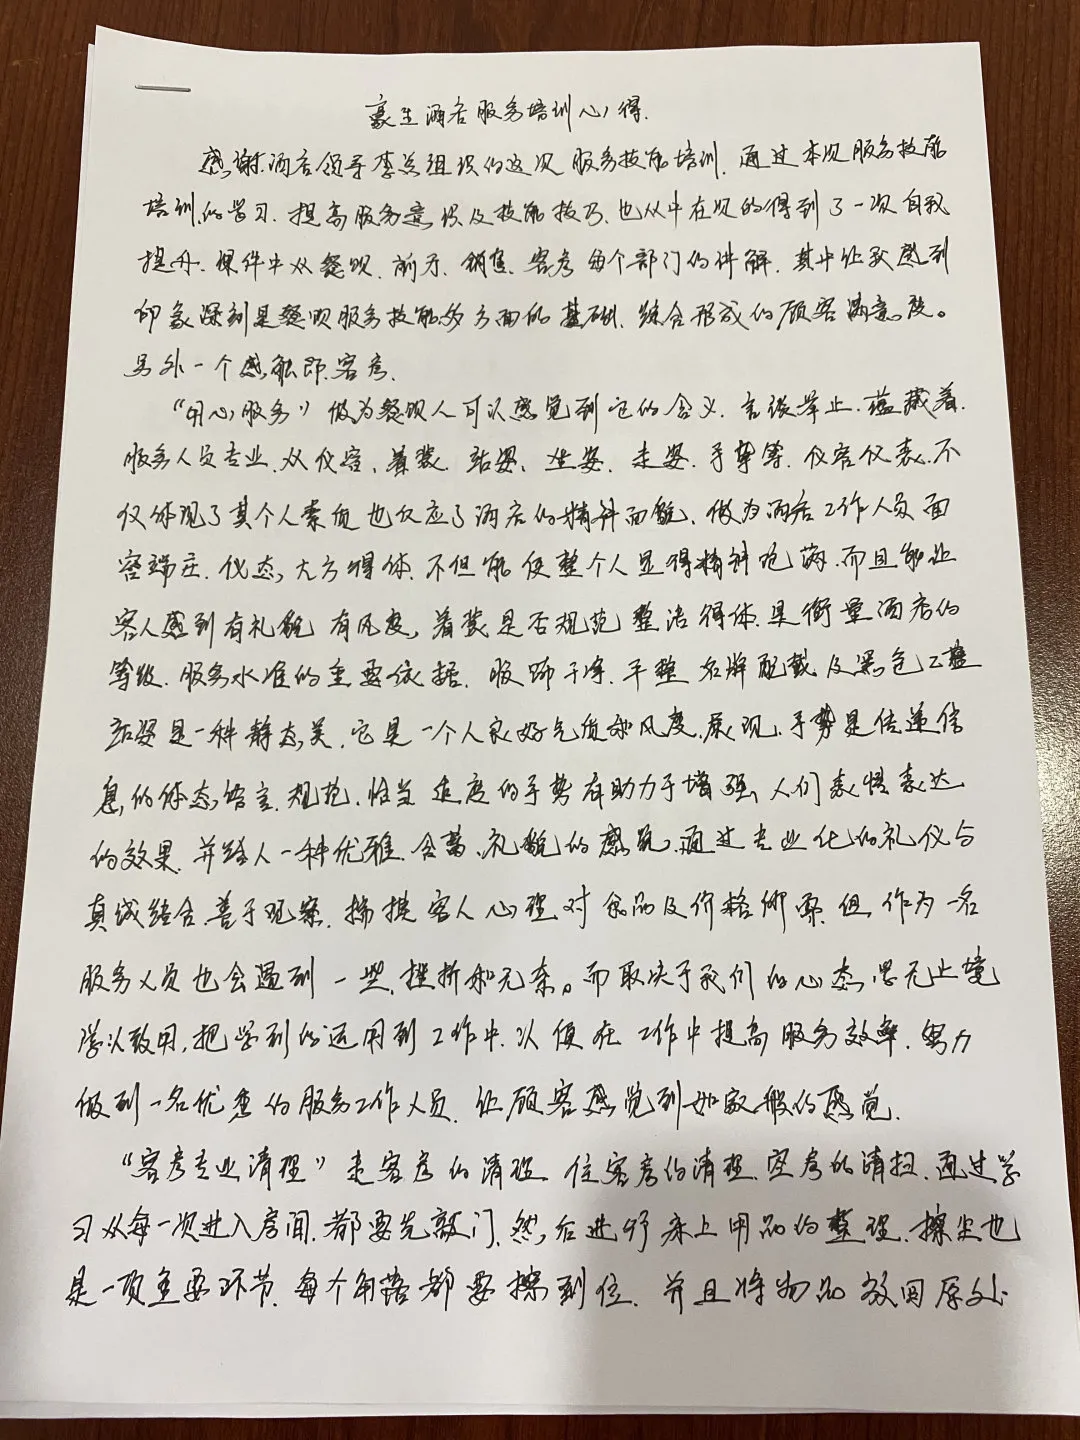 豪生酒店服务培训心得.
感谢酒店领导李总组织的这次服务技能培训.通过本次服务技能
培训的学习.提高服务意识及技能技巧.也从中在次的得到了一次自我
提升.课件中从餐饮.前厅.销售.客房每个部门的讲解.其中让我感到
印象深刻是餐饮服务技能多方面的基础.综合形成的顾客满意度。
另外一个感触即客房.
“用心服务”做为餐饮人可以感觉到它的含义.言谈举止.蕴藏着.
服务人员专业.从仪容、着装 站姿、坐姿、走姿.手势等.仪容仪表.不
仅体现了其个人素质也反应了酒店的精神面貌.做为酒店工作人员面
容端庄.仪态,大方得体.不但能使整个人显得精神饱满.而且能让
客人感到有礼貌 有风度,着装是否规范 整洁得体.是衡量酒店的
等级.服务水准的重要依据.服饰干净.平整 名牌配戴及黑色工鞋
站姿是一种静态美.它是一个人良好气质和风度.展现.手势是传递信
息的体态语言.规范.恰当 适度的手势有助力于增强人们表情表达
的效果.并给人一种优雅.含蓄、礼貌的感觉,通过专业化的礼仪与
真诚结合.善于观察.揣摸客人心理对食品及价格所需.但作为一名
服务人员也会遇到一些.挫折和无奈。而取决于我们的心态,思无止境
学以致用,把学到的运用到工作中.以便在工作中提高服务效率.努力
做到一名优秀的服务工作人员.让顾客感觉到如家般的感觉.
“客房专业清理”走客房的清理.住客房的清理.空房的清扫.通过学
习从每一次进入房间.都要先敲门.然后进行床上用品的整理.擦尘也
是一项重要环节.每个角落都要擦到位.并且将物品放回原处